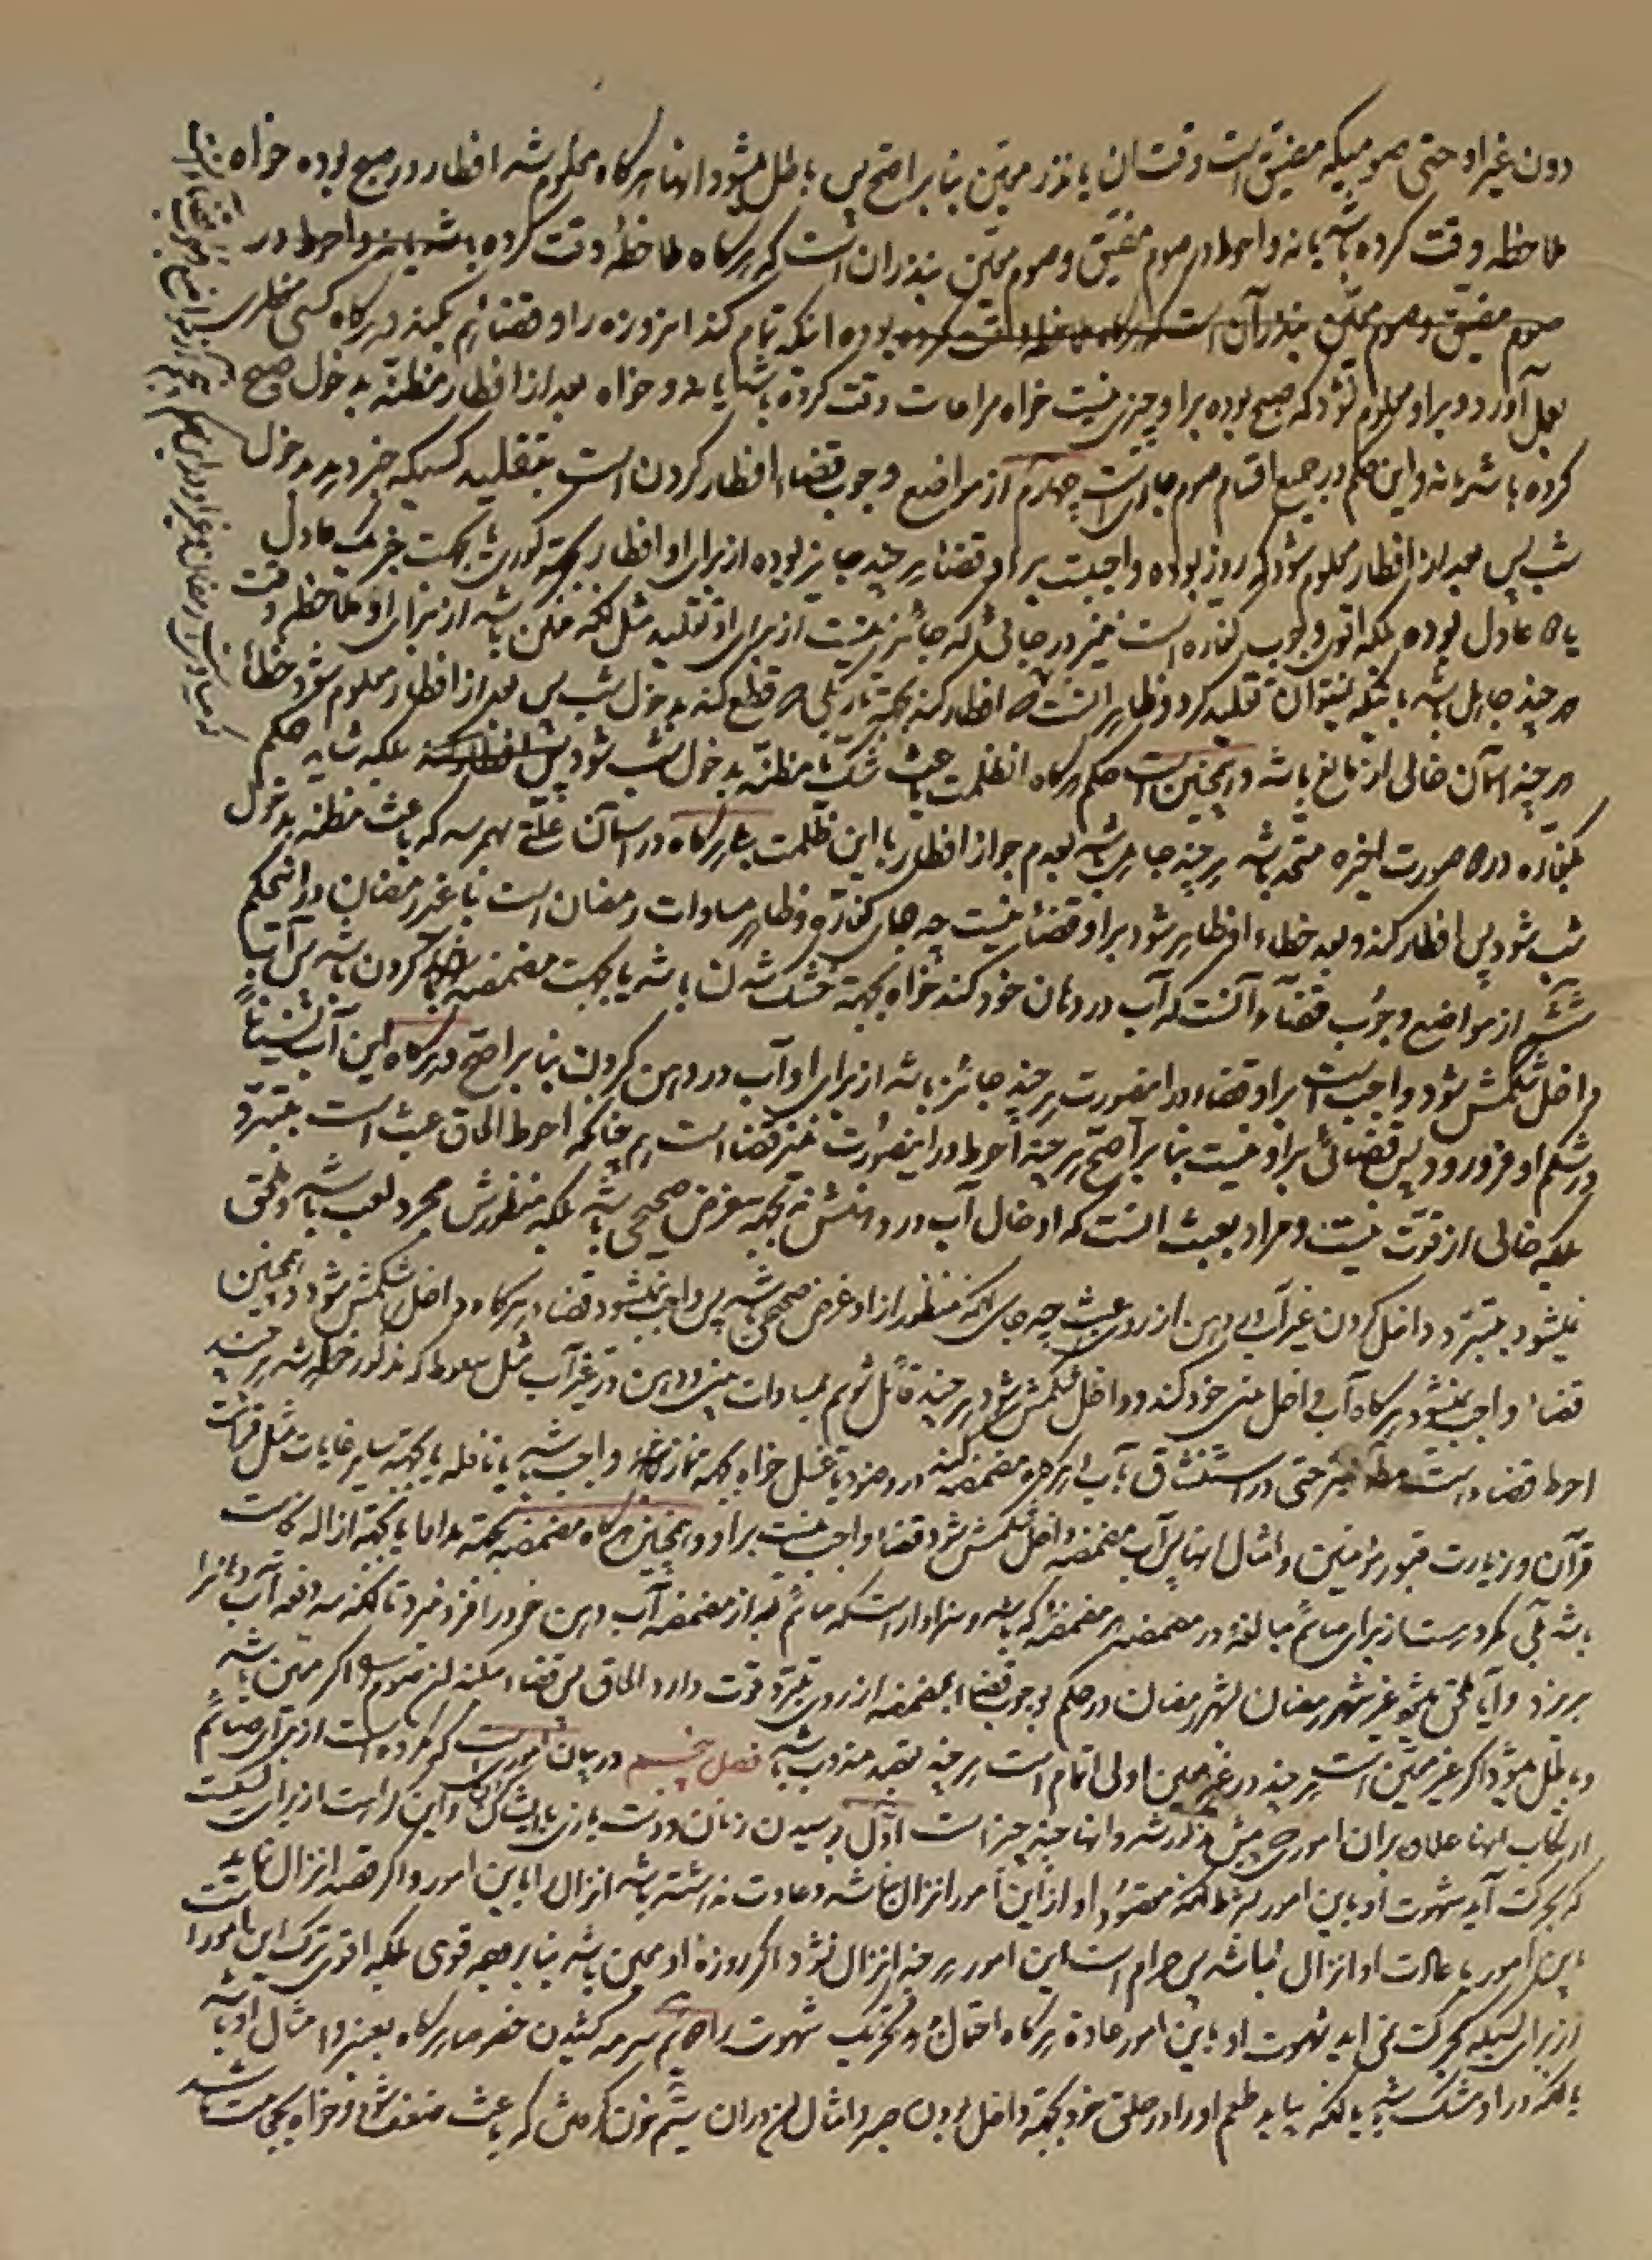 دون غیر او حتی صومیکه مضیق است وقت ان یا نذر معین بنا بر اصح پس باطل میشود انها هرگاه معلوم شد افطار در صبح بوده خواه
ملاحظه وقت کرده باشد یا نه و احوط در صوم مضیق و صوم معین بنذر ان است که هرگاه ملاحظهٔ وقت کرده باشد یا نه و احوط در
صوم مضیق و صوم معین بنذر آن است که هرگاه ملاحظه وقت کرده بوده اینکه تمام کند امروزه را و قضائهم بکند و هرگاه کسی مفطری
بعمل آورد و بر او معلوم نشود که صبح بوده بر او چیزی نیست خواه مراعات وقت کرده باشد یا نه و خواه بعد از افطار مظنّه بدخول صبح
کرده باشد یا نه و این حکم در جمیع اقسام صوم جاریست چهارم از مواضع وجوب قضاء افطار کردن است بتقلید کسیکه خبر دهد بدخول
شب پس بعد از افطار معلوم شود که روز بوده واجبست بر او قضا هر چند جایز بوده از برای او افطار بجهة کوری یا بجهت خبر یک عادل
یا عادل بوده بلکه اقوی وجوب کفاره است نیز در جائی که جائز نیست از برای او تقلید مثل آنکه ممکن باشد از برای او ملاحظه وقت
هر چند جاهل باشد باینکه نمیتوان تقلید کرد و ظاهر انست افطار کند بجهة تاریکی قطع کند بدخول شب پس بعد از افطار معلوم شود خطا
هر چند آسمان خالی از مانع باشد و همچنین است حکم هرگاه ان ظلمت باعث شک یا مظنّه بدخول شب شود پس افطار کند بلکه شاید حکم
بکفاره در صورت اخیره متجه باشد هر چند جاهل باشد بعدم جواز افطار با این ظلمت هرگاه در آسمان علّتی بهم رسد که باعث مظنه بدخول
شب شود پس افطار کند و بعد خطاء او ظاهر شود بر او قضاء نیست چه جای کفاره و ظاهر مساوات رمضان است با غیر رمضان در اینحکم
ششم از مواضع وجوب قضاء آنست که آب در دهان خود کند خواه بجهة خنک شدن باشد یا بجهت مضمضه کردن باشد پس آب
داخل شکمش شود واجب است بر او قضاء در اینصورت هر چند جائز باشد از برای او آب در دهن کردن بنا بر اصح و هرگاه این آب نسیاناً
در شکم او فرو رود پس قضائی بر او نیست بنا بر اصح هر چند احوط در اینصورت نیز قضا است هم چنانکه احوط الحاق عبث است بتبرّد
بلکه خالی از قوّت نیست و مراد بعبث انست که ادخال آب در دهنش نه بجهة غرض صحیحی باشد بلکه منظورش مجرد لعب باشد و ملحق
نمیشود بتبرّد داخل کردن غیر آب در دهن از روی عبث چه جای آنکه منظور از او غرض صحیحی باشد پس واجب نمیشود قضاء هرگاه داخل شکمش شود و همچنین
قضاء واجب نمیشود هرگاه آب داخل بینی خود کند و داخل شکمش شود هر چند قائل شویم بمساوات بینی و دهن در غیر آب مثل سعوط که مذکور خواهد شد هر چند
احوط قضاء است نیز حتی در استنشاق بآب هرگاه مضمضه کند در وضو یا غسل خواه بجهة نماز واجب باشد یا نافله یا بجهة سایر غایات مثل قرائت
قرآن و زیارت قبور مؤمنین و امثال اینها پس آب مضمضه داخل شکمش شود قضاء واجب نیست بر او و همچنین هرگاه مضمضه بجهة مداوا یا بجهة ازاله نجاست
باشد بلی مکروهست از برای صائم مبالغه در مضمضه هر مضمضه که باشد و سزاوار است که صائم بعد از مضمضه آب دهن خود را فرو نبرد تا آنکه سه دفعه آب دهانرا
بریزد و آیا ملحق میشود غیر شهر رمضان بشهر رمضان در حکم بوجوب قضاء بمضمضه از روی تبرّد قوت دارد الحاق پس قضاء میکند ان صوم را اگر معین باشد
و باطل میشود اگر غیر معین است هر چند در غیر معین اولی اتمام است هر چند بقصد مندوب باشد فصل پنجم در بیان اموریست که مکروه است از برای صائم
ارتکاب انها علاوه بران اموریکه پیش مذکور شد و انها چند چیز است اوّل بوسیدن زنان و دست بازی با ایشان و این کراهت از برای کسیست
که بحرکت آید شهوت او باین امور بشرط آنکه مقصود او از این امور انزال نباشد و عادت نداشته باشد انزال را باین امور و اگر قصد انزال داشت
باین امور یا عادت او انزال باشد پس حرام است این امور هر چند انزال نشود اگر روزه او معین باشد بنا بر وجه قوی بلکه اقوی ترک این امور است
از برای کسیکه بحرکت نمی اید شهوت او باین امور عادة هرگاه احتمال دهد تحریک شهوت را دویم سرمه کشیدن خصوصا هرگاه بعنبر و امثال او باشد
یا آنکه در او مشک باشد یا آنکه بیاید طعم او را در حلق خود بجهة داخل بودن صبر و امثال ان در ان سیّم خون گرفتن که باعث ضعف شود خواه بحجامت باشد